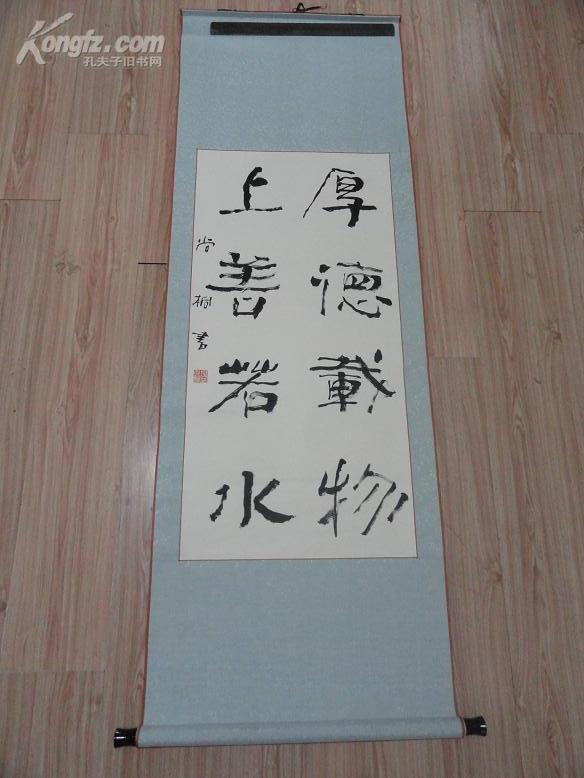 Kongfz.com
孔夫子旧书网
厚德載物
上善若水
尚桐書